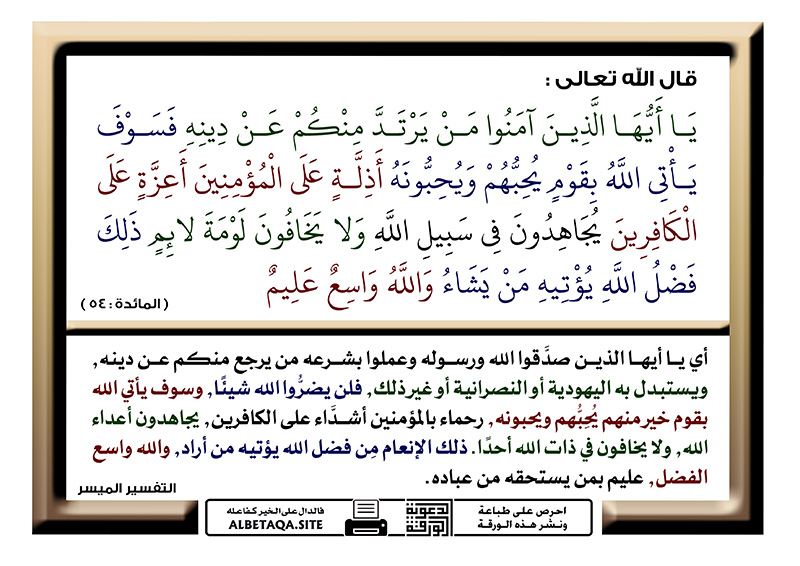 قال الله تعالى :
يَا أَيُّهَا الَّذِينَ آمَنُوا مَنْ يَرْتَدَّ مِنْكُمْ عَنْ دِينِهِ فَسَوْفَ
يَأْتِي اللَّهُ بِقَوْمٍ يُحِبُّهُمْ وَيُحِبُّونَهُ أَذِلَّةٍ عَلَى الْمُؤْمِنِينَ أَعِزَّةٍ عَلَى
الْكَافِرِينَ يُجَاهِدُونَ فِي سَبِيلِ اللَّهِ وَلا يَخَافُونَ لَوْمَةَ لائِمٍ ذَلِكَ
فَضْلُ اللَّهِ يُؤْتِيهِ مَنْ يَشَاءُ وَاللَّهُ وَاسِعٌ عَلِيمٌ
(المائدة : ٥٤)
أي يا أيها الذين صدَّقوا الله ورسوله وعملوا بشرعه من يرجع منكم عن دينه,
ويستبدل به اليهودية أو النصرانية أو غير ذلك, فلن يضرُّوا الله شيئًا, وسوف يأتي الله
بقوم خير منهم يُحِبُّهم ويحبونه, رحماء بالمؤمنين أشدَّاء على الكافرين, يجاهدون أعداء
الله, ولا يخافون في ذات الله أحدًا. ذلك الإنعام مِن فضل الله يؤتيه من أراد, والله واسع
الفضل, عليم بمن يستحقه من عباده.
التفسير الميسر
احرص على طباعة
ونشر هذه الورقة
الدعوية
الورقة
فالدال على الخير كفاعله
ALBETAQA.SITE